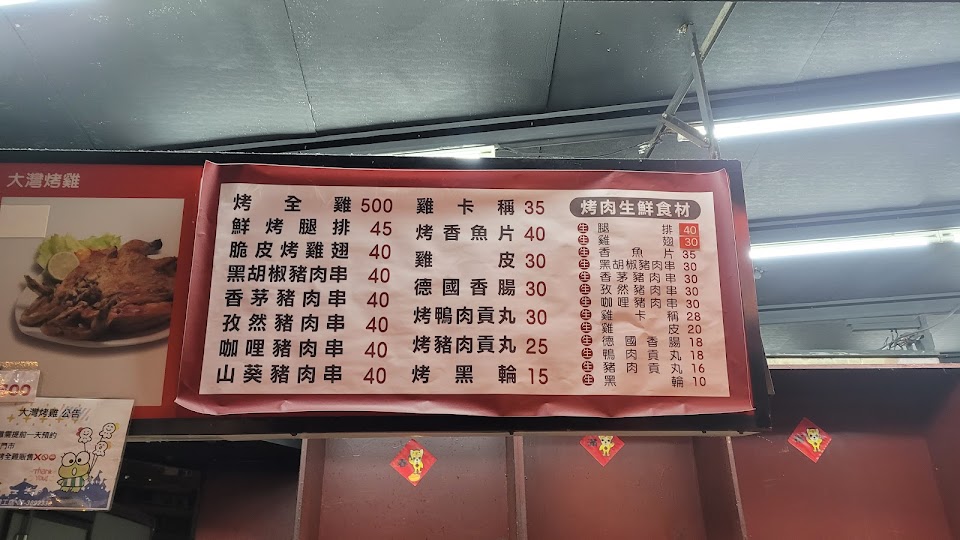 大灣烤雞
烤全雞 500
鮮烤腿排 45
脆皮烤雞翅 40
黑胡椒豬肉串 40
香茅豬肉串 40
孜然豬肉串 40
咖哩豬肉串 40
山葵豬肉串 40
雞卡稱 35
烤香魚片 40
雞皮 30
德國香腸 30
烤鴨肉貢丸 30
烤豬肉貢丸 25
烤黑輪 15
烤肉生鮮食材
生 腿排 40
生 雞翅 30
生 香魚片 35
生 黑胡椒豬肉串 30
生 香茅豬肉串 30
生 孜然豬肉串 30
生 咖哩豬肉串 30
生 雞卡稱 28
生 雞皮 20
生 德國香腸 18
生 鴨肉貢丸 18
生 豬肉貢丸 16
生 黑輪 10
大灣烤雞 公告
需提前一天預約
門市
烤全雞販售